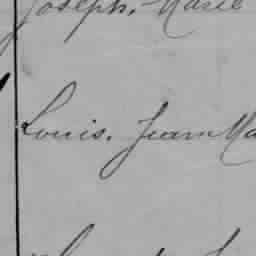 Joseph, Marie
Louis. Jean Ma